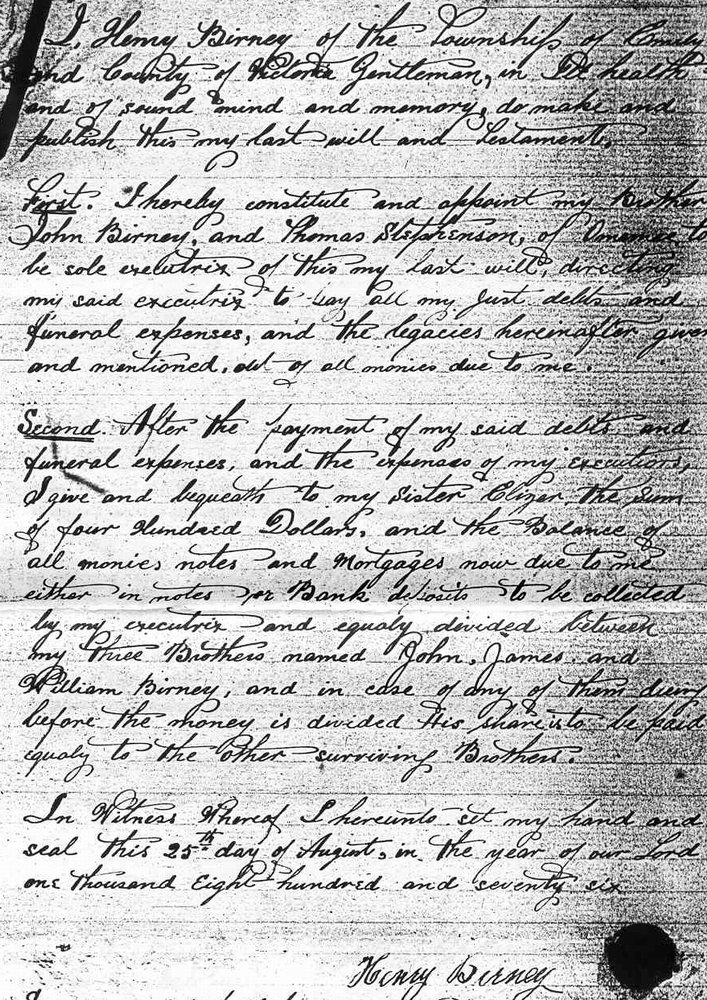 I, Henry Birney of the Township of Emily
and County of Victoria Gentleman, in health
and of sound mind and memory, do make and
publish this my last will and testament.
First. I hereby constitute and appoint my Brother
John Birney, and Thomas Stephenson, of Omemee to
be sole executrix of this my last will, directing
my said executrix to pay all my just debts and
funeral expenses, and the legacies hereinafter given
and mentioned, out of all monies due to me.
Second. After the payment of my said debts and
funeral expenses, and the expenses of my executions,
I give and bequeath to my sister Elizer the sum
of four Hundred Dollars, and the Balance of
all monies notes and Mortgages now due to me
either in notes or Bank deposits to be collected
by my executrix and equaly divided between
my three Brothers named John, James and
William Birney, and in case of any of them dieing
before the money is divided His share is to be paid
equaly to the other surviving Brothers.
In Witness Whereof I hereunto set my hand and
seal this 25th day of August, in the year of our Lord
one thousand Eight hundred and seventy six
Henry Birney